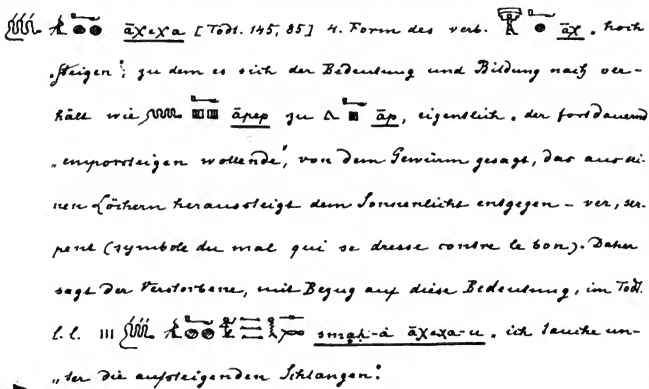 āχeχa [Todt. 145, 85] 4. Form des verb. āχ „hoch
„steigen“; zu dem es sich der Bedeutung und Bildung nach ver-
hält wie āpep zu āp, eigentlich „der fortdauernd
„emporsteigen wollende“, von dem Gewürm gesagt, das aus sei-
nen Löchern heraussteigt dem Sonnenlicht entgegen – ver, ser-
pent (symbole du mal qui se dresse contre le bon). Daher
sagt der Verstorbene, mit Bezug auf diese Bedeutung, im Todt.
l. l. smaḥ-ȧ āχeχa-u „ich tauche un-
„ter die aufsteigenden Schlangen“.